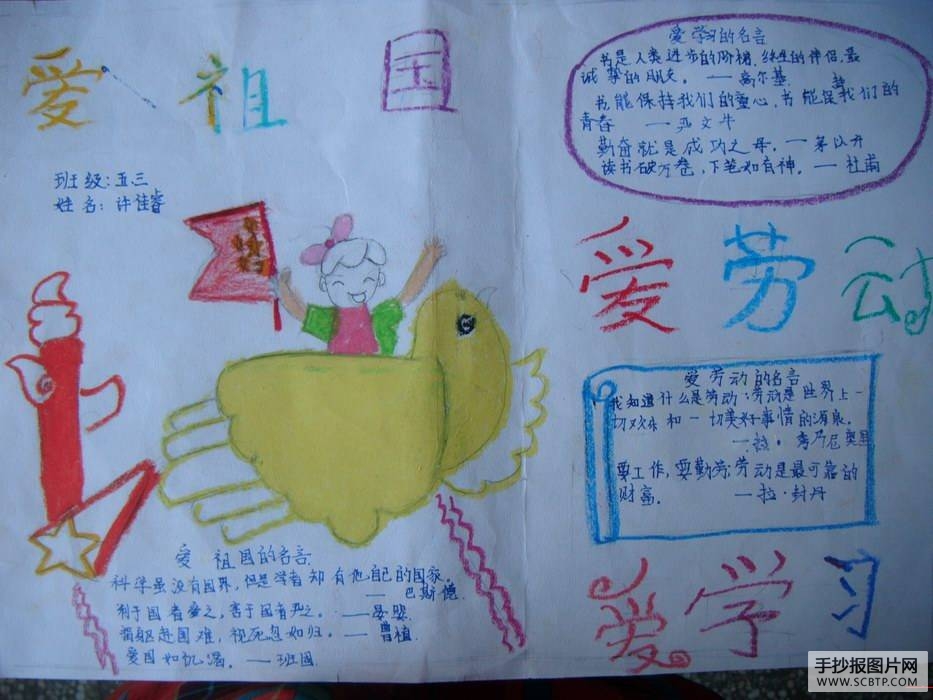 爱祖国
班级:五.三
姓名:许佳睿
爱学习的名言
书是人类进步的阶梯,终生的伴侣,最
诚挚的朋友。——高尔基
书能保持我们的童心,书能保我们的
青春 ——严文牛
勤奋就是成功之母。——茅以升
读书破万卷,下笔如有神。——杜甫
爱劳动
爱劳动的名言
我知道什么是劳动:劳动是世界上一
切欢乐和一切美好事情的源泉。
要工作,要勤劳:劳动是最可靠的
财富。 ——拉·封丹
爱祖国的名言
科学虽没有国界,但是学者却有他自己的国家。
——巴斯德
利于国者爱之,害于国者恶之。——晏婴
捐躯赴国难,视死忽如归。——曹植
爱国如饥渴。——班固
爱学习
手抄报图片网
WWW.SCBTP.COM